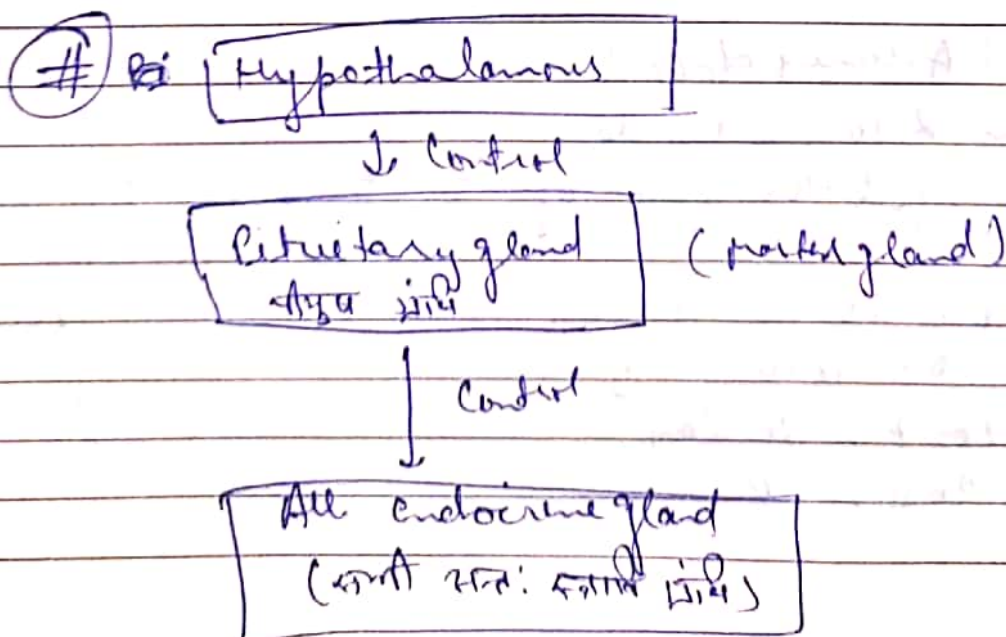 # Hypothalamous
↓ Control
Pituetary gland (master gland)
पीयूष ग्रंथि
↓ Control
All endocrine gland
(सभी अन्तः स्त्रावी ग्रंथि)